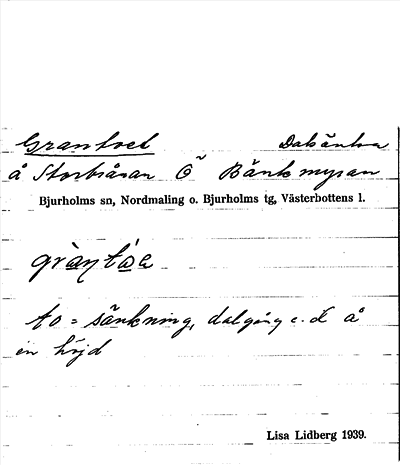 Grantoet Dabäntra
å Storbråsan Ö Bänkmyran
Bjurholms sn, Nordmaling o. Bjurholms tg, Västerbottens l.
to = sänkning, dalgång e.d. å
en höjd
Lisa Lidberg 1939.